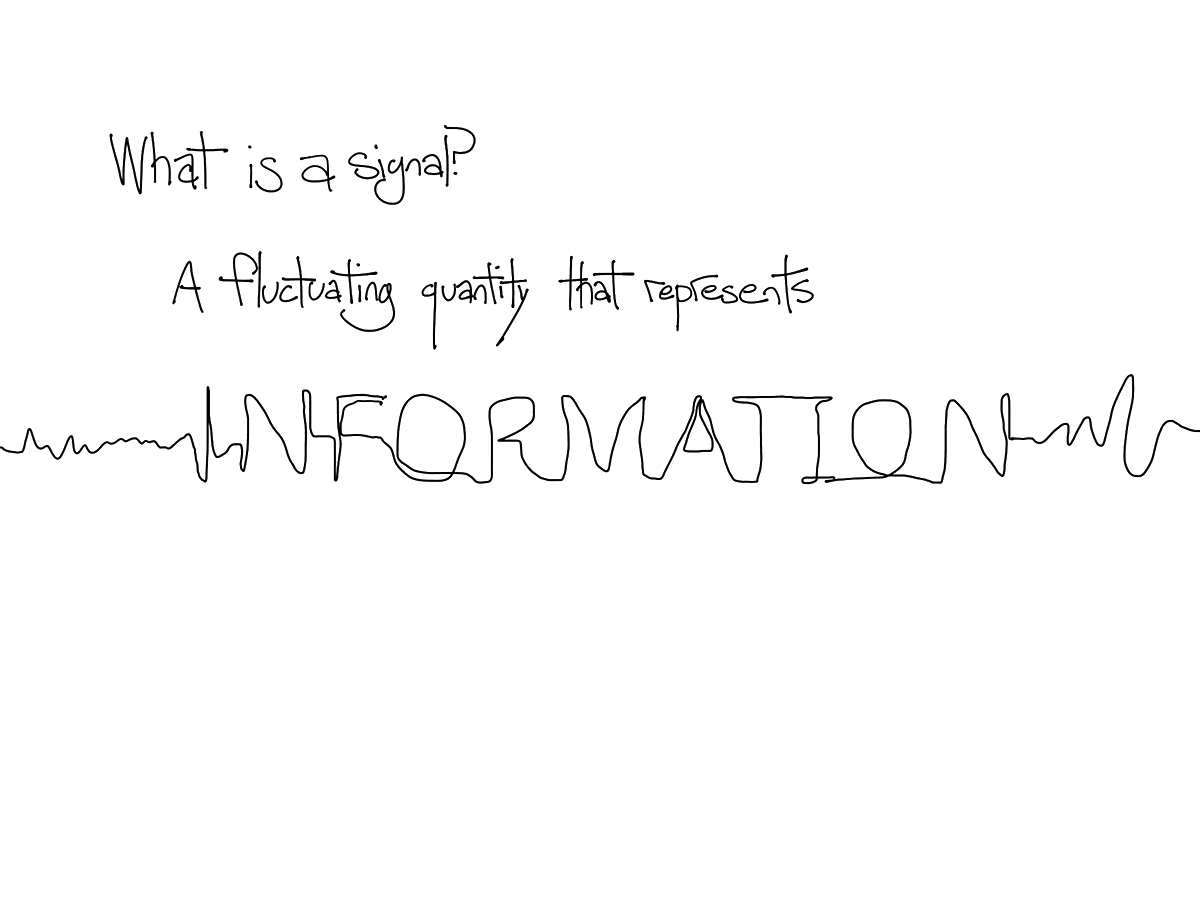 What is a signal?
A fluctuating quantity that represents
INFORMATION